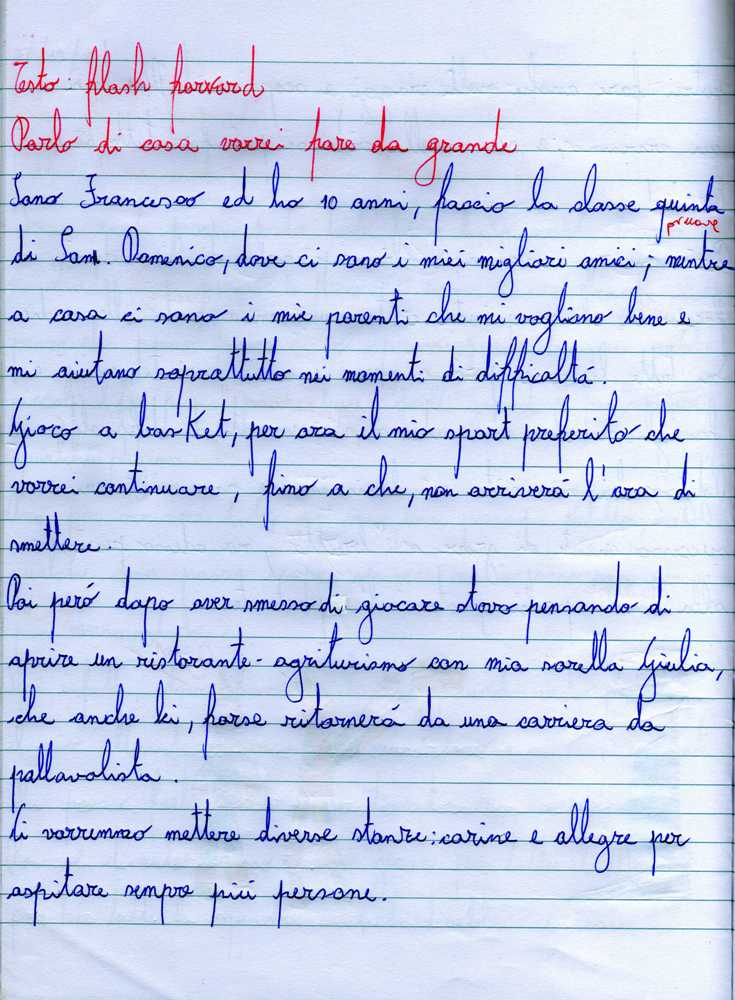 Testo: flash forward
Parlo di cosa vorrei fare da grande
Sono Francesco ed ho 10 anni, faccio la classe quinta
di San. Domenico, dove ci sono i miei migliori amici; mentre
a casa ci sono i mie parenti che mi vogliono bene e
mi aiutano soprattutto nei momenti di difficoltá.
Gioco a basket, per ora il mio sport preferito che
vorrei continuare, fino a che, non arriverá l'ora di
smettere.
Poi peró dopo aver smesso di giocare stavo pensando di
aprire un ristorante-agriturismo con mia sorella Giulia,
che anche lei, forse ritornerá da una carriera da
pallavolista.
Ci vorremmo mettere diverse stanze: carine e allegre per
ospitare sempre piú persone.